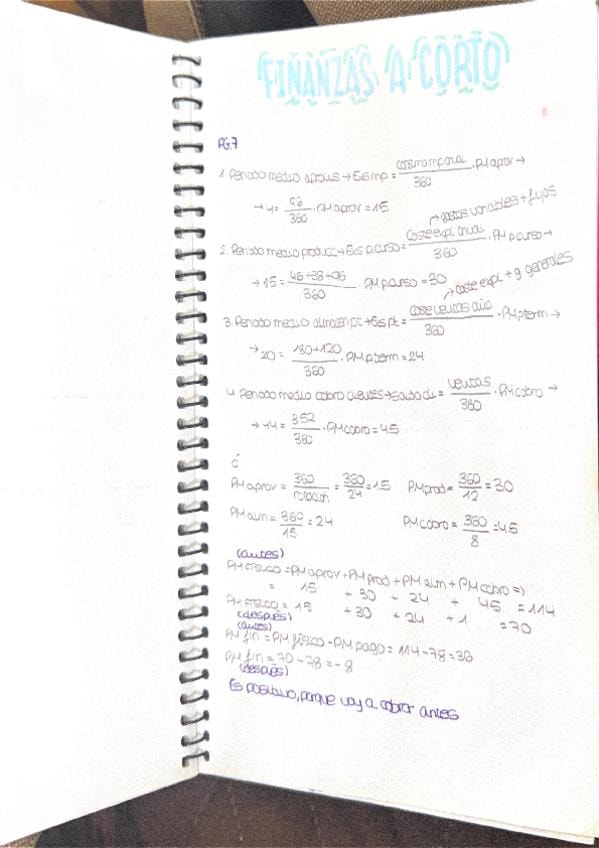 FINANZAS A CORTO
PG.7
1. Periodo medio aprovis → Ex mp = consumo mp anual / 360 · PM aprov →
→ 4 = 96 / 360 · PM aprov = 15
→ gastos variables + fijos
2. Periodo medio product → Exs p curso = coste expl anual / 360 · PM p curso →
→ 15 = 46+38+96 / 360 · PM p curso = 30
→ coste expl + g generales
3. Periodo medio almacen pt → Exs pt = coste ventas año / 360 · PM p term →
→ 20 = 180+120 / 360 · PM p term = 24
4. Periodo medio cobro clientes → Saldo cli = ventas / 360 · PM cobro →
→ 44 = 352 / 360 · PM cobro = 45
ó
PM aprov = 360 / rotación = 360 / 24 = 15 PM prod = 360 / 12 = 30
PM alm = 360 / 15 = 24 PM cobro = 360 / 8 = 45
(antes)
PM FÍSICO = PM aprov + PM prod + PM alm + PM cobro =)
= 15 + 30 + 24 + 45 = 114
PM FÍSICO = 15 + 30 + 24 + 1 = 70
(después)
(antes)
PM fin = PM físico - PM pago = 114 - 78 = 36
PM fin = 70 - 78 = -8
(después)
Es positivo, porque voy a cobrar antes